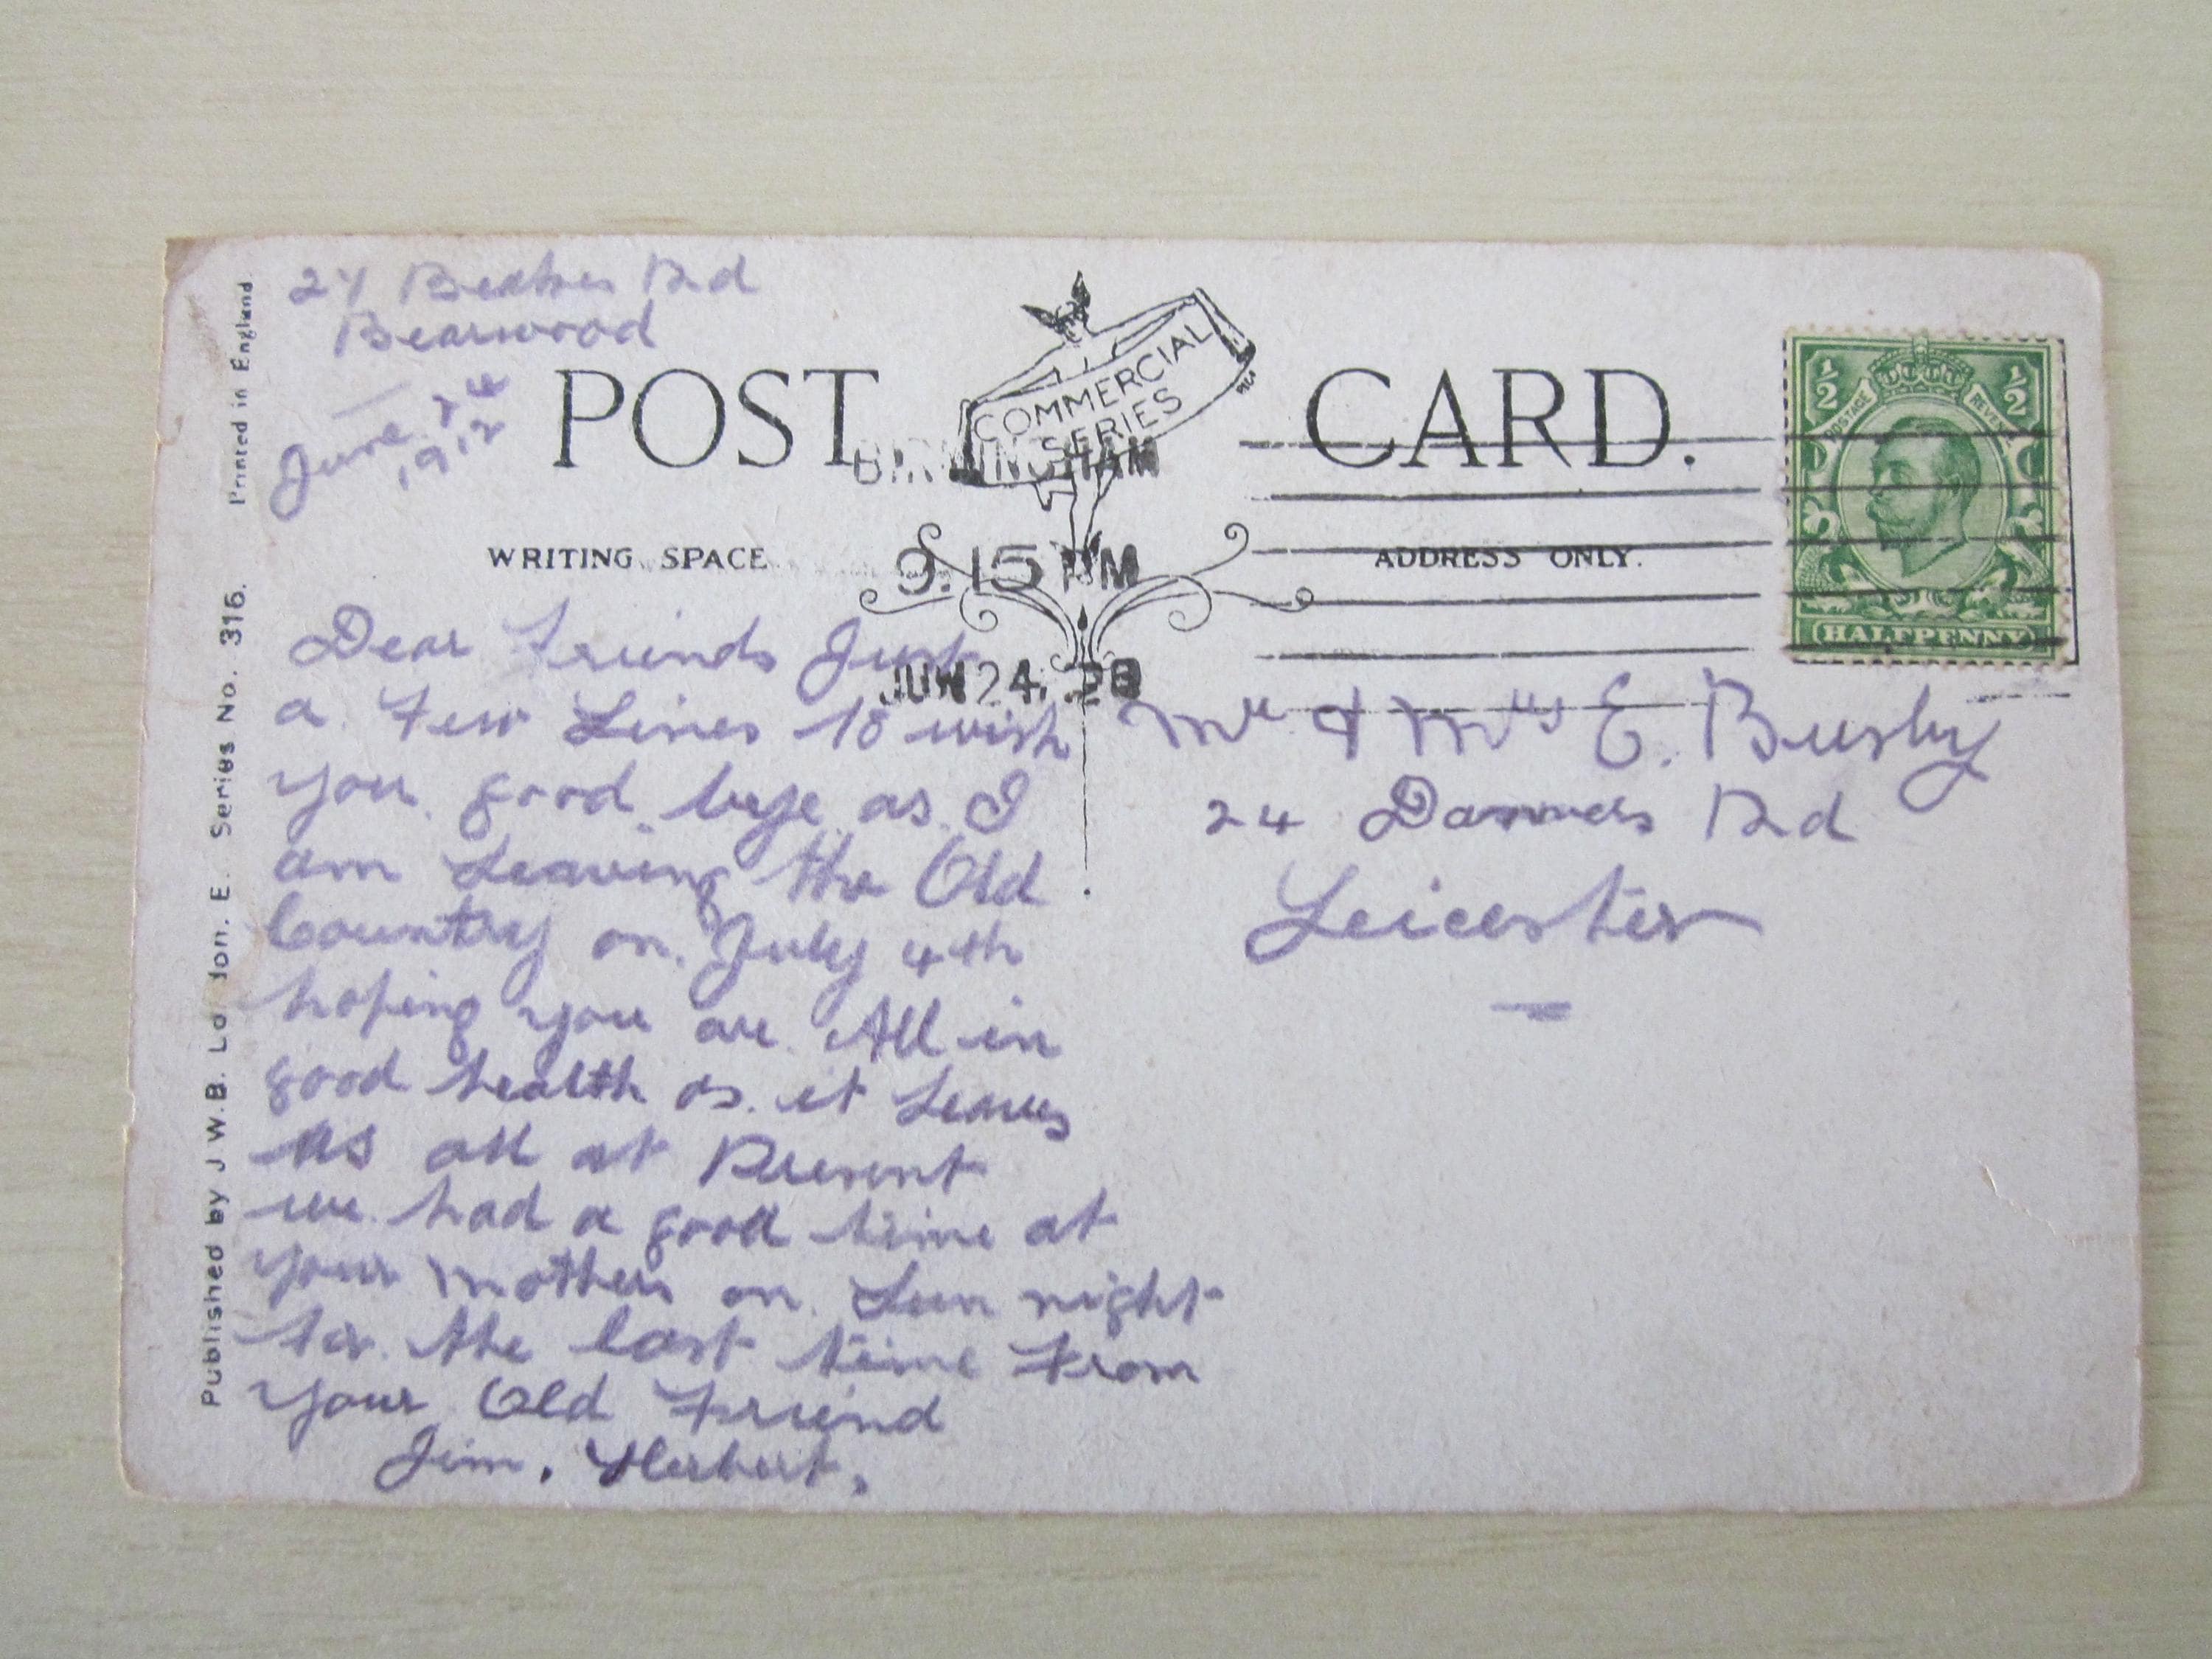 Bearwood
June 24
1912
POST CARD.
COMMERCIAL
SERIES
BIRMINGHAM
9.15 PM
JUN 24
WRITING SPACE
ADDRESS ONLY.
1/2 1/2
POSTAGE REVENUE
HALFPENNY
Dear Friends Just
a Few Lines to wish
you good bye as I
am Leaving the Old
Country on July 4th
hoping you are All in
good health as it Leaves
us all at Present
we had a good time at
your mothers on Sun night
for the last time From
your Old Friend
Jim. Herbert.
Mr & Mrs E. Busby
24 Danvers Rd
Leicester
Published by J W. B. Lo don. E. Series No. 316. Printed in England